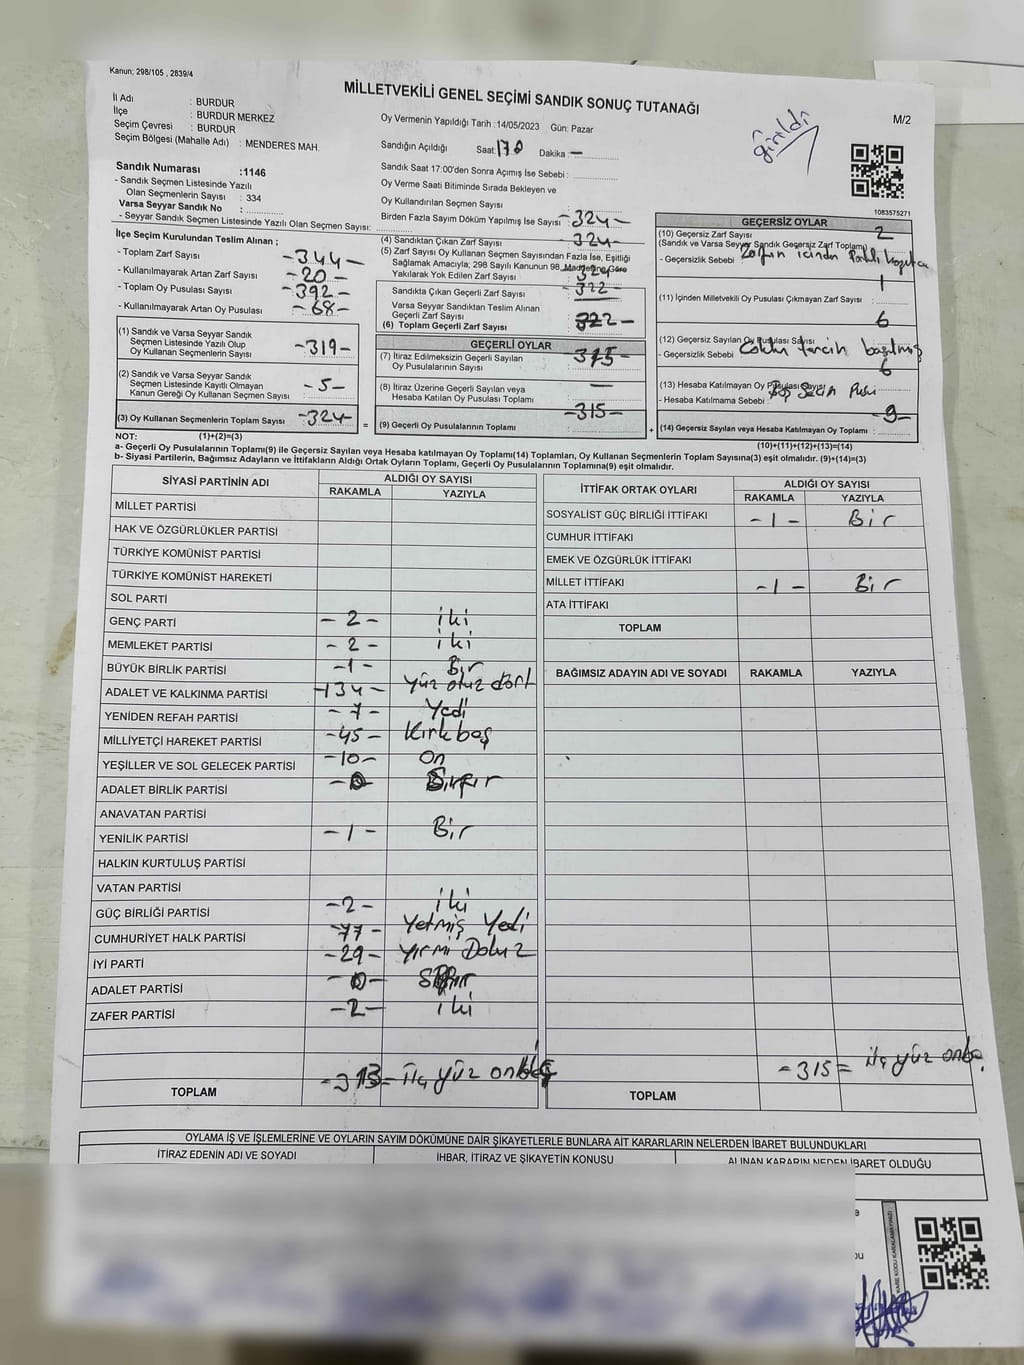 Kanun; 298/105 , 2839/4
MİLLETVEKİLİ GENEL SEÇİMİ SANDIK SONUÇ TUTANAĞI
M/2
girildi
İl Adı : BURDUR
İlçe : BURDUR MERKEZ
Seçim Çevresi : BURDUR
Seçim Bölgesi (Mahalle Adı) : MENDERES MAH.
Oy Vermenin Yapıldığı Tarih : 14/05/2023 Gün: Pazar
Sandığın Açıldığı Saat: Dakika : —
Sandık Saat 17:00'den Sonra Açımış İse Sebebi :
Oy Verme Saati Bitiminde Sırada Bekleyen ve
Oy Kullandırılan Seçmen Sayısı
Birden Fazla Sayım Döküm Yapılmış İse Sayısı -324-
Sandık Numarası :1146
- Sandık Seçmen Listesinde Yazılı
Olan Seçmenlerin Sayısı : 334
Varsa Seyyar Sandık No :
- Seyyar Sandık Seçmen Listesinde Yazılı Olan Seçmen Sayısı:
1083575271
İlçe Seçim Kurulundan Teslim Alınan ;
- Toplam Zarf Sayısı -344-
- Kullanılmayarak Artan Zarf Sayısı -20-
- Toplam Oy Pusulası Sayısı -392-
- Kullanılmayarak Artan Oy Pusulası -68-
(1) Sandık ve Varsa Seyyar Sandık
Seçmen Listesinde Yazılı Olup
Oy Kullanan Seçmenlerin Sayısı -319-
(2) Sandık ve Varsa Seyyar Sandık
Seçmen Listesinde Kayıtlı Olmayan
Kanun Gereği Oy Kullanan Seçmen Sayısı -5-
(3) Oy Kullanan Seçmenlerin Toplam Sayısı -324- =
(4) Sandıktan Çıkan Zarf Sayısı -324-
(5) Zarf Sayısı Oy Kullanan Seçmen Sayısından Fazla İse, Eşitliği
Sağlamak Amacıyla; 298 Sayılı Kanunun 98. Maddesine Göre
Yakılarak Yok Edilen Zarf Sayısı 324
Sandıkta Çıkan Geçerli Zarf Sayısı -322-
Varsa Seyyar Sandıktan Teslim Alınan
Geçerli Zarf Sayısı
(6) Toplam Geçerli Zarf Sayısı 322-
GEÇERLİ OYLAR
(7) İtiraz Edilmeksizin Geçerli Sayılan
Oy Pusulalarının Sayısı -315-
(8) İtiraz Üzerine Geçerli Sayılan veya
Hesaba Katılan Oy Pusulası Toplamı —
(9) Geçerli Oy Pusulalarının Toplamı -315- +
GEÇERSİZ OYLAR
(10) Geçersiz Zarf Sayısı 2
(Sandık ve Varsa Seyyar Sandık Geçersiz Zarf Toplamı)
- Geçersizlik Sebebi
1
(11) İçinden Milletvekili Oy Pusulası Çıkmayan Zarf Sayısı :
6
(12) Geçersiz Sayılan Oy Pusulası Sayısı
- Geçersizlik Sebebi Çoklu tercih basılmış
6
(13) Hesaba Katılmayan Oy Pusulası Sayısı
- Hesaba Katılmama Sebebi :
-9-
(14) Geçersiz Sayılan veya Hesaba Katılmayan Oy Toplamı :
NOT: (1)+(2)=(3) (10)+(11)+(12)+(13)=(14)
a- Geçerli Oy Pusulalarının Toplamı(9) ile Geçersiz Sayılan veya Hesaba katılmayan Oy Toplamı(14) Toplamları, Oy Kullanan Seçmenlerin Toplam Sayısına(3) eşit olmalıdır. (9)+(14)=(3)
b- Siyasi Partilerin, Bağımsız Adayların ve İttifakların Aldığı Ortak Oyların Toplamı, Geçerli Oy Pusulalarının Toplamına(9) eşit olmalıdır.
SİYASİ PARTİNİN ADI ALDIĞI OY SAYISI
RAKAMLA YAZIYLA
MİLLET PARTİSİ
HAK VE ÖZGÜRLÜKLER PARTİSİ
TÜRKİYE KOMÜNİST PARTİSİ
TÜRKİYE KOMÜNİST HAREKETİ
SOL PARTİ
GENÇ PARTİ -2- iki
MEMLEKET PARTİSİ -2- iki
BÜYÜK BİRLİK PARTİSİ -1- Bir
ADALET VE KALKINMA PARTİSİ -134- Yüz otuz dört
YENİDEN REFAH PARTİSİ -7- Yedi
MİLLİYETÇİ HAREKET PARTİSİ -45- Kırkbeş
YEŞİLLER VE SOL GELECEK PARTİSİ -10- On
ADALET BİRLİK PARTİSİ -0 Sıfır
ANAVATAN PARTİSİ
YENİLİK PARTİSİ -1- Bir
HALKIN KURTULUŞ PARTİSİ
VATAN PARTİSİ
GÜÇ BİRLİĞİ PARTİSİ -2- iki
CUMHURİYET HALK PARTİSİ -77- Yetmiş Yedi
İYİ PARTİ -29- Yirmi Dokuz
ADALET PARTİSİ -0- Sıfır
ZAFER PARTİSİ -2- iki
TOPLAM
İTTİFAK ORTAK OYLARI ALDIĞI OY SAYISI
RAKAMLA YAZIYLA
SOSYALİST GÜÇ BİRLİĞİ İTTİFAKI -1- Bir
CUMHUR İTTİFAKI
EMEK VE ÖZGÜRLÜK İTTİFAKI
MİLLET İTTİFAKI -1- Bir
ATA İTTİFAKI
TOPLAM
BAĞIMSIZ ADAYIN ADI VE SOYADI RAKAMLA YAZIYLA
-315=
TOPLAM
OYLAMA İŞ VE İŞLEMLERİNE VE OYLARIN SAYIM DÖKÜMÜNE DAİR ŞİKAYETLERLE BUNLARA AİT KARARLARIN NELERDEN İBARET BULUNDUKLARI
İTİRAZ EDENİN ADI VE SOYADI İHBAR, İTİRAZ VE ŞİKAYETİN KONUSU ALINAN KARARIN NEDEN İBARET OLDUĞU